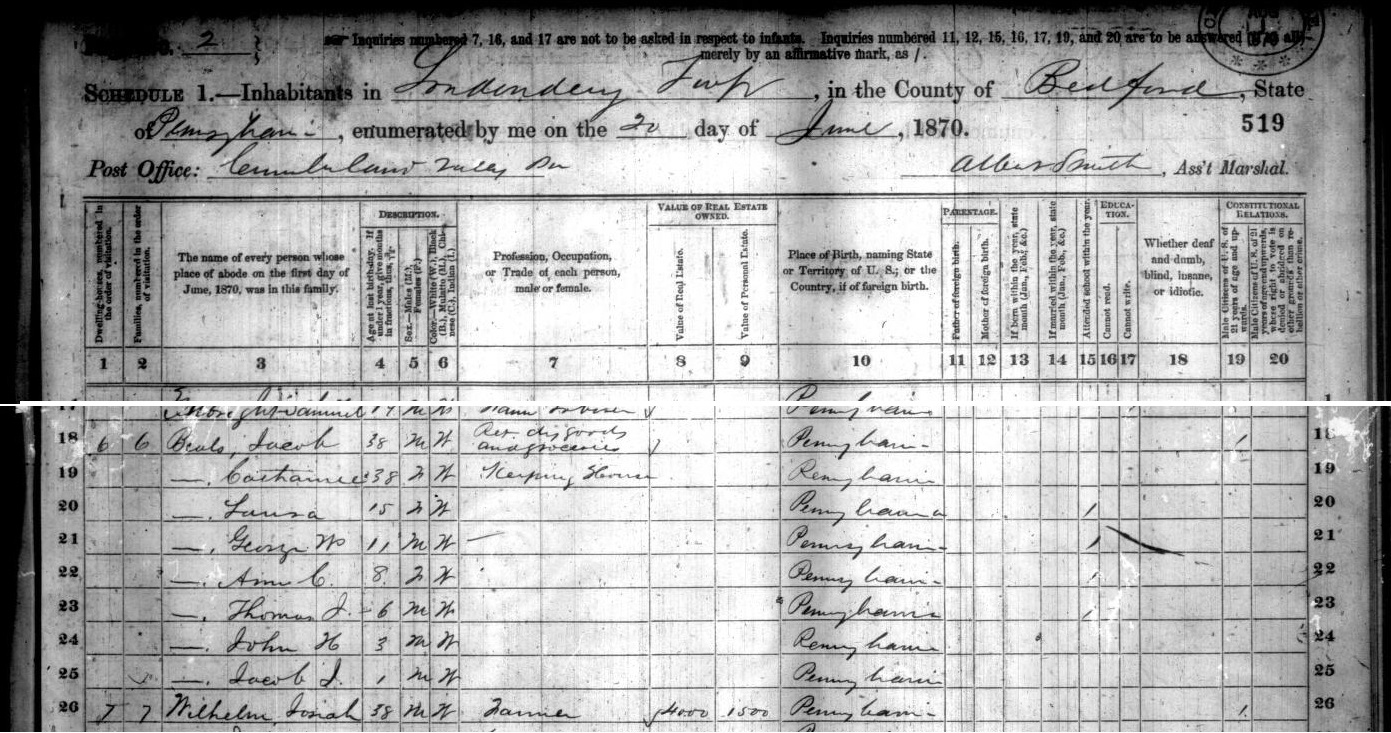 2
Inquiries numbered 7, 16, and 17 are not to be asked in respect to infants. Inquiries numbered 11, 12, 15, 16, 17, 19, and 20 are to be answered
merely by an affirmative mark, as /.
SCHEDULE 1.—Inhabitants in Londonderry Twp, in the County of Bedford, State
of, enumerated by me on the 20 day of June, 1870.
519
Post Office: Cumberland Valley Pa
Albert Smith, Ass't Marshal.
Dwelling-houses, numbered in the order of visitation.
Families, numbered in the order of visitation.
The name of every person whose place of abode on the first day of June, 1870, was in this family.
DESCRIPTION.
Age at last birthday. If under 1 year, give months in fractions, thus,
Sex.—Males (M.), Females (F.)
Color.—White (W.), Black (B.), Mulatto (M.), Chinese (C.), Indian (I.)
Profession, Occupation, or Trade of each person, male or female.
VALUE OF REAL ESTATE OWNED.
Value of Real Estate.
Value of Personal Estate.
Place of Birth, naming State or Territory of U. S.; or the Country, if of foreign birth.
PARENTAGE.
Father of foreign birth.
Mother of foreign birth.
If born within the year, state month (Jan., Feb., &c.)
If married within the year, state month (Jan., Feb., &c.)
Attended school within the year.
EDUCATION.
Cannot read.
Cannot write.
Whether deaf and dumb, blind, insane, or idiotic.
CONSTITUTIONAL RELATIONS.
Male Citizens of U. S. of 21 years of age and upwards.
Male Citizens of U. S. of 21 years of age and upwards, where right to vote is denied or abridged on other grounds than rebellion or other crime.
1 2 3 4 5 6 7 8 9 10 11 12 13 14 15 16 17 18 19 20
17 Samuel M W
18 6 6 Beals, Jacob 38 M W Ret. dry goods and groceries 1 18
19 —. 38 F W Keeping House 19
20 —. Laura 15 F W 1 20
21 —. George W 11 M W — 1 21
22 —. Ann C. 8 F W 1 22
23 —. Thomas J. 6 M W 1 23
24 —. John H 3 M W 24
25 —. Jacob J. 1 M W 25
26 7 7 Wilhelm, Josiah 38 M W Farmer 4000 1500 1 26